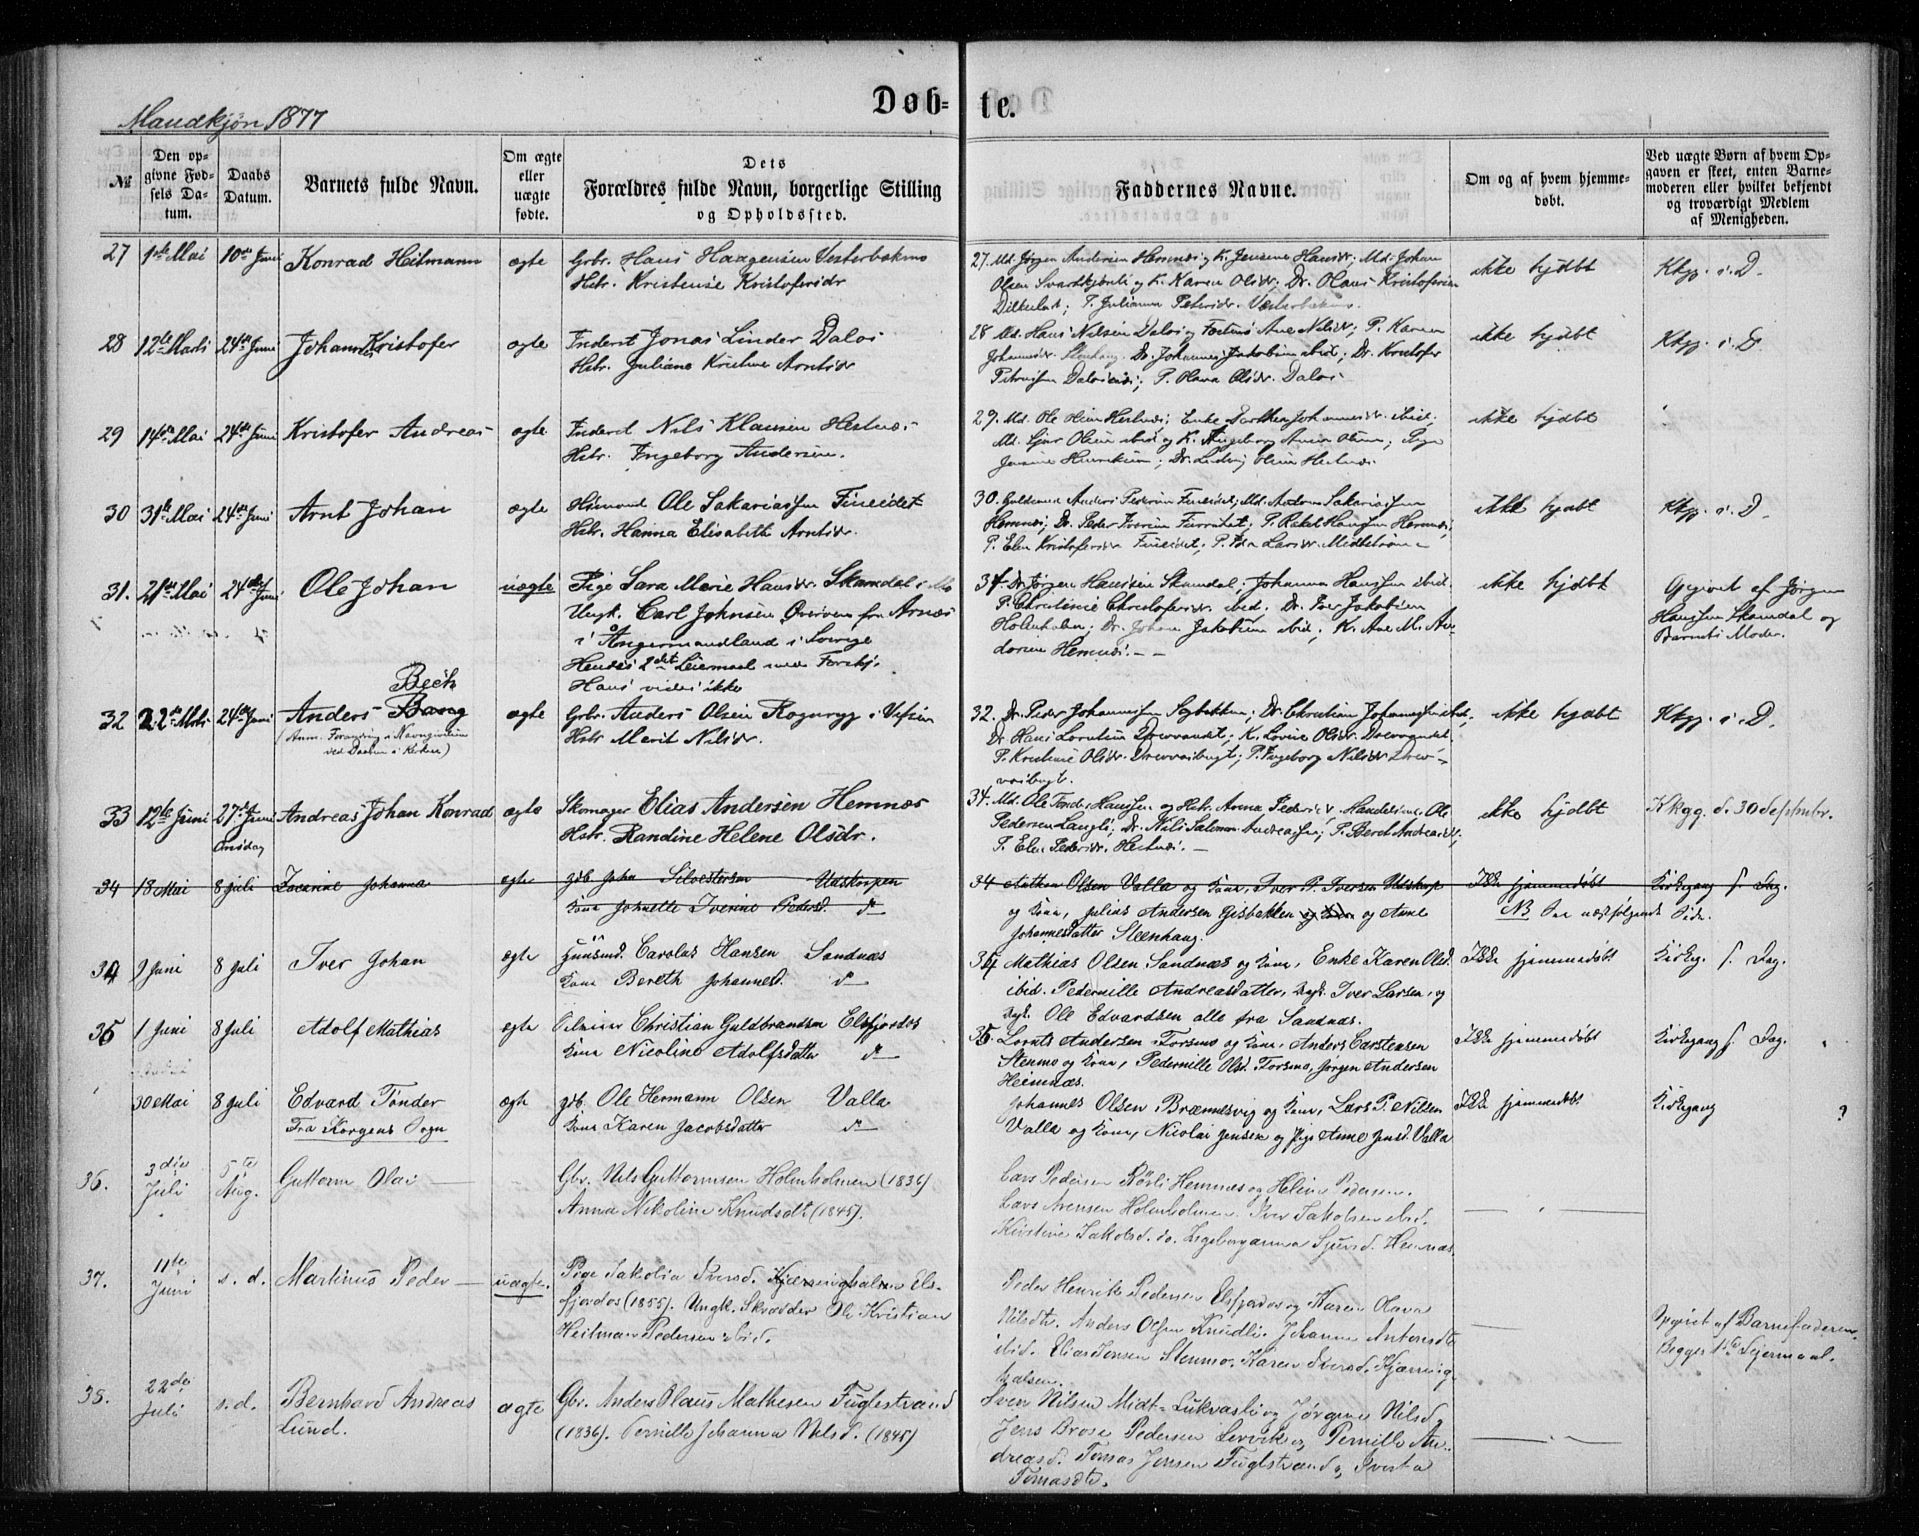 Døb-
te.
Mandkjøn 1877
№
Den op-
givne Fød-
sels Da-
tum.
Daabs
Datum.
Barnets fulde Navn.
Om ægte
eller
uægte
fødte.
Dets
Forældres fulde Navn, borgerlige Stilling
og Opholdssted.
Faddernes Navne.
Om og af hvem hjemme-
døbt.
Ved uægte Børn af hvem Op-
gaven er skeet, enten Barne-
moderen eller hvilket bekjendt
og troværdigt Medlem
af Menigheden.
27 1ste Mai 10de Juni Konrad Heitmann ægte Grbr. Hans Haagensen
Hstr. Kristense Kristofersdr
27. Md. Jørgen Andersen Hemnæs; K. Jensine Hansdr; Md. Johan
Olsen og K. Karen Olsdr; Dr. Olaus Kristofersen
P. Juliana Petersdr.
ikke hjdbt Kkgg. s. D.
28 12te Marts 24de Juni Johannes Kristofer ægte Inderst Jonas Linder Dalos
Hstr. Juliane Kristine Arntsdr
28 Md. Hans Nilsen Dalos og Anne Nilsdr; P. Karen
Johannesdr Dr. Johannes Jakobsen ibid; Dr. Kristofer
P. Olava Olsdr. Dalos
ikke hjdbt Kkgg. s. D.
29 14de Mai 24de Juni Kristofer Andreas ægte Inderst Nils Klausen Hestnæs
Hstr. Ingeborg Andersen.
29. Md. Ole Hestnæs; Enke Johannesdr. ibid;
Md. Olsen ibid og K. Ingeborg Anna Olsen; Pige
Henriksen; Dr. Ludvig Olsen Hestnæs
ikke hjdbt
30 31te Mai 24de Juni Arnt Johan ægte Husmand Ole Sakariassen Fineidet
Hstr. Hanna Elisabeth Arntsdr.
30. Anders Pedersen Fineidet; Md. Anders Sakariassen
Hemnæs; Dr. Peder Iversen P. Rakel Hansen Hemnæs;
P. Elen Kristofersdr Fineidet; P. Larsdr. Midtstrøm
ikke hjdbt Kkgg. s. D.
31. 21de Mai 24de Juni Ole Johan uægte Pige Sara Marie Hansdr. Skamdal i Mo
Ungk. Carl Johnsen fra Arnæs
i Ångermandland i Sverige
Hendes 2det Leiermaal
Hans vides ikke
31 Dr. Jørgen Hansen Skamdal; Johanna Hansen ibid;
P. Christine Christofersdr ibid. Dr. Iver Jakobsen
Holmholm; Dr. Johan Jakobsen ibid; K. Ane M. An-
dersen Hemnæs. — —
ikke hjdbt Opgivet af Jørgen
Hansen Skamdal og
Barnets Moder.
Bech
32 22de Mts 24de Juni Anders Bang ægte Grbr. Anders Olsen i Vefsen
(Anm. Forandring i Navngivelsen
ved Daaben i Kirken)
Hstr Merit Nilsdr.
32. Dr. Peder Johannessen Dr. Christian Johannessen ibid,
Dr. Hans Drevvandet; K. Lovise Olsdr. Drevvandet
P. Kristine Olsdr. P. Ingeborg Nilsdr
ikke hjdbt Kkgg. s. D.
33 12te Juni 27de Juni
Onsdag
Andreas Johan Konrad ægte Skomager Elias Andersen Hemnæs
Hstr. Randine Helene Olsdr.
34. Md. Ole Tond. Hansen og Hstr. Anna Pedersdr, Ole
Pedersen Langli; Dr. Nils Salomon Andreassen; P. Berel Andreasdr;
P. Elen Pedersdr. Hestnæs. —
ikke hjdbt Kkgg. d. 30 September.
34 18 Mai 8 Juli Zacarine Johanna ægte gdb. John Silvestersen Utskarpen
Kone Johnette Iverine Pedersd. do
34 Anthon Olsen Valla og Kone, Iver P. Iversen Utskarp
og Kone, Julius Andersen Gisbakken og Kone og Anne
Johannesdatter Steenhaug.
Ikke hjemmedøbt Kirkegang s. Dag.
NB See næstfølgende Side.
34 9 Juni 8 Juli Iver Johan ægte Huusmd. Carolus Hansen Sandnæs
Kone Bereth Johannesd. do
34 Mathias Olsen Sandnæs og Kone, Enke Karen Olsd.
ibid. Pedernille Andreasdatter, Ungk. Iver Larsen, og
Ungk. Ole Edvardsen alle fra Sandnæs.
Ikke hjemmedøbt Kirkeg. s. Dag.
35 1 Juni 8 Juli Adolf Mathias ægte Christian Guldbrandsen Elsfjordos
Kone Nicoline Adolfsdatter do
35. Lornts Andersen Forsmo og Kone, Anders Carstensen
Stenmo og Kone, Pedernille Olsd. Forsmo, Jørgen Andersen
Hemnæs.
Ikke hjemmedøbt Kirkegang s. Dag.
30 Mai 8 Juli Edvard Tønder
Fra Korgens Sogn
ægte gdb. Ole Hermann Olsen Valla
Kone Karen Jacobsdatter do
Johannes Olsen Brennesvig og Kone, Lars P. Nilsen
Valla og Kone, Nicolai Jensen og Pige Anne Jensd. Valla
Ikke hjemmedøbt Kirkegang ?
36. 3die
Juli
5te
Aug.
Guttorm Olai — Gbr. Nils Guttormsen Holmholmen (1836)
Anna Nikoline Knudsdt (1845).
Lars Pedersen Rørli Hemnæs og Heline Pedersen.
Lars Arensen Holmholmen. Iver Jakobsen ibid.
Kirstine Jakobsd. do. Ingeborganna Sjursd. Hemnæs
37. 11te
Juni
s. d. Martinus Peder — uægte. Pige Jakobia Iversd. Kjærringhalsen Els-
fjordos (1855). Ungk. Skrædder Ole Kristian
Heitman Pedersen ibid.
Peder Henrik Pedersen Elsfjordos og Karen Olava
Nilsdt. Anders Olsen Knudli. Johanna Antonsdt
ibid. Elias Jensen Stenmo. Karen Iversd. Kjærring-
halsen.
Opgivet af Barnefaderen.
Begges 1ste Lejermaal.
38. 22de
Juli
s. d. Bernhard Andreas
Lund.
ægte Gbr. Anders Olaus Mathesen Fuglestrand
(1836). Pernille Johanna Nilsd. (1845)
Sven Nilsen Midt-Lukvasli og Jørgine Nilsd.
Jens Brose Pedersen Lervik og Pernille An-
dreasd. Tomas Jensen Fuglstrand og
Tomasdt.